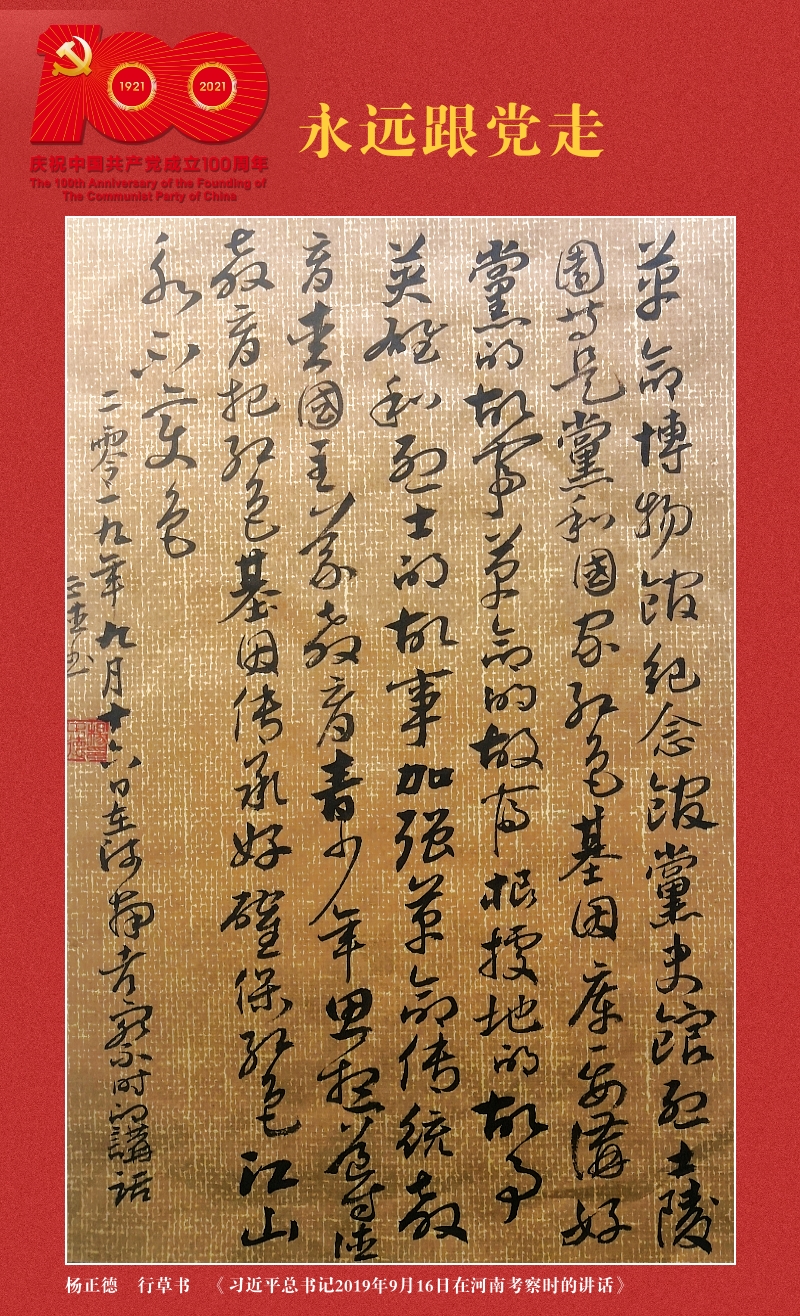 1921
2021
庆祝中国共产党成立100周年
The 100th Anniversary of the Founding of
The Communist Party of China
永远跟党走
革命博物館纪念館黨史館烈士陵
園等是黨和國家红色基因庫要講好
黨的故事革命的故事根據地的故事
英雄和烈士的故事加强革命传統教
育爱國主義教育青少年思想道德
教育把红色基因传承好確保红色江山
永不变色
二零一九年九月十六日在河南考察时的講話
正德书
杨正德 行草书 《习近平总书记2019年9月16日在河南考察时的讲话》